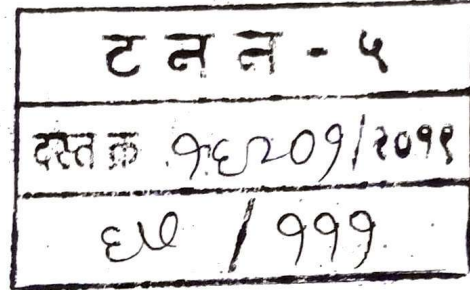 ट न न - ५
दस्त क्र. १६२०१/२०१९
६७ / १११